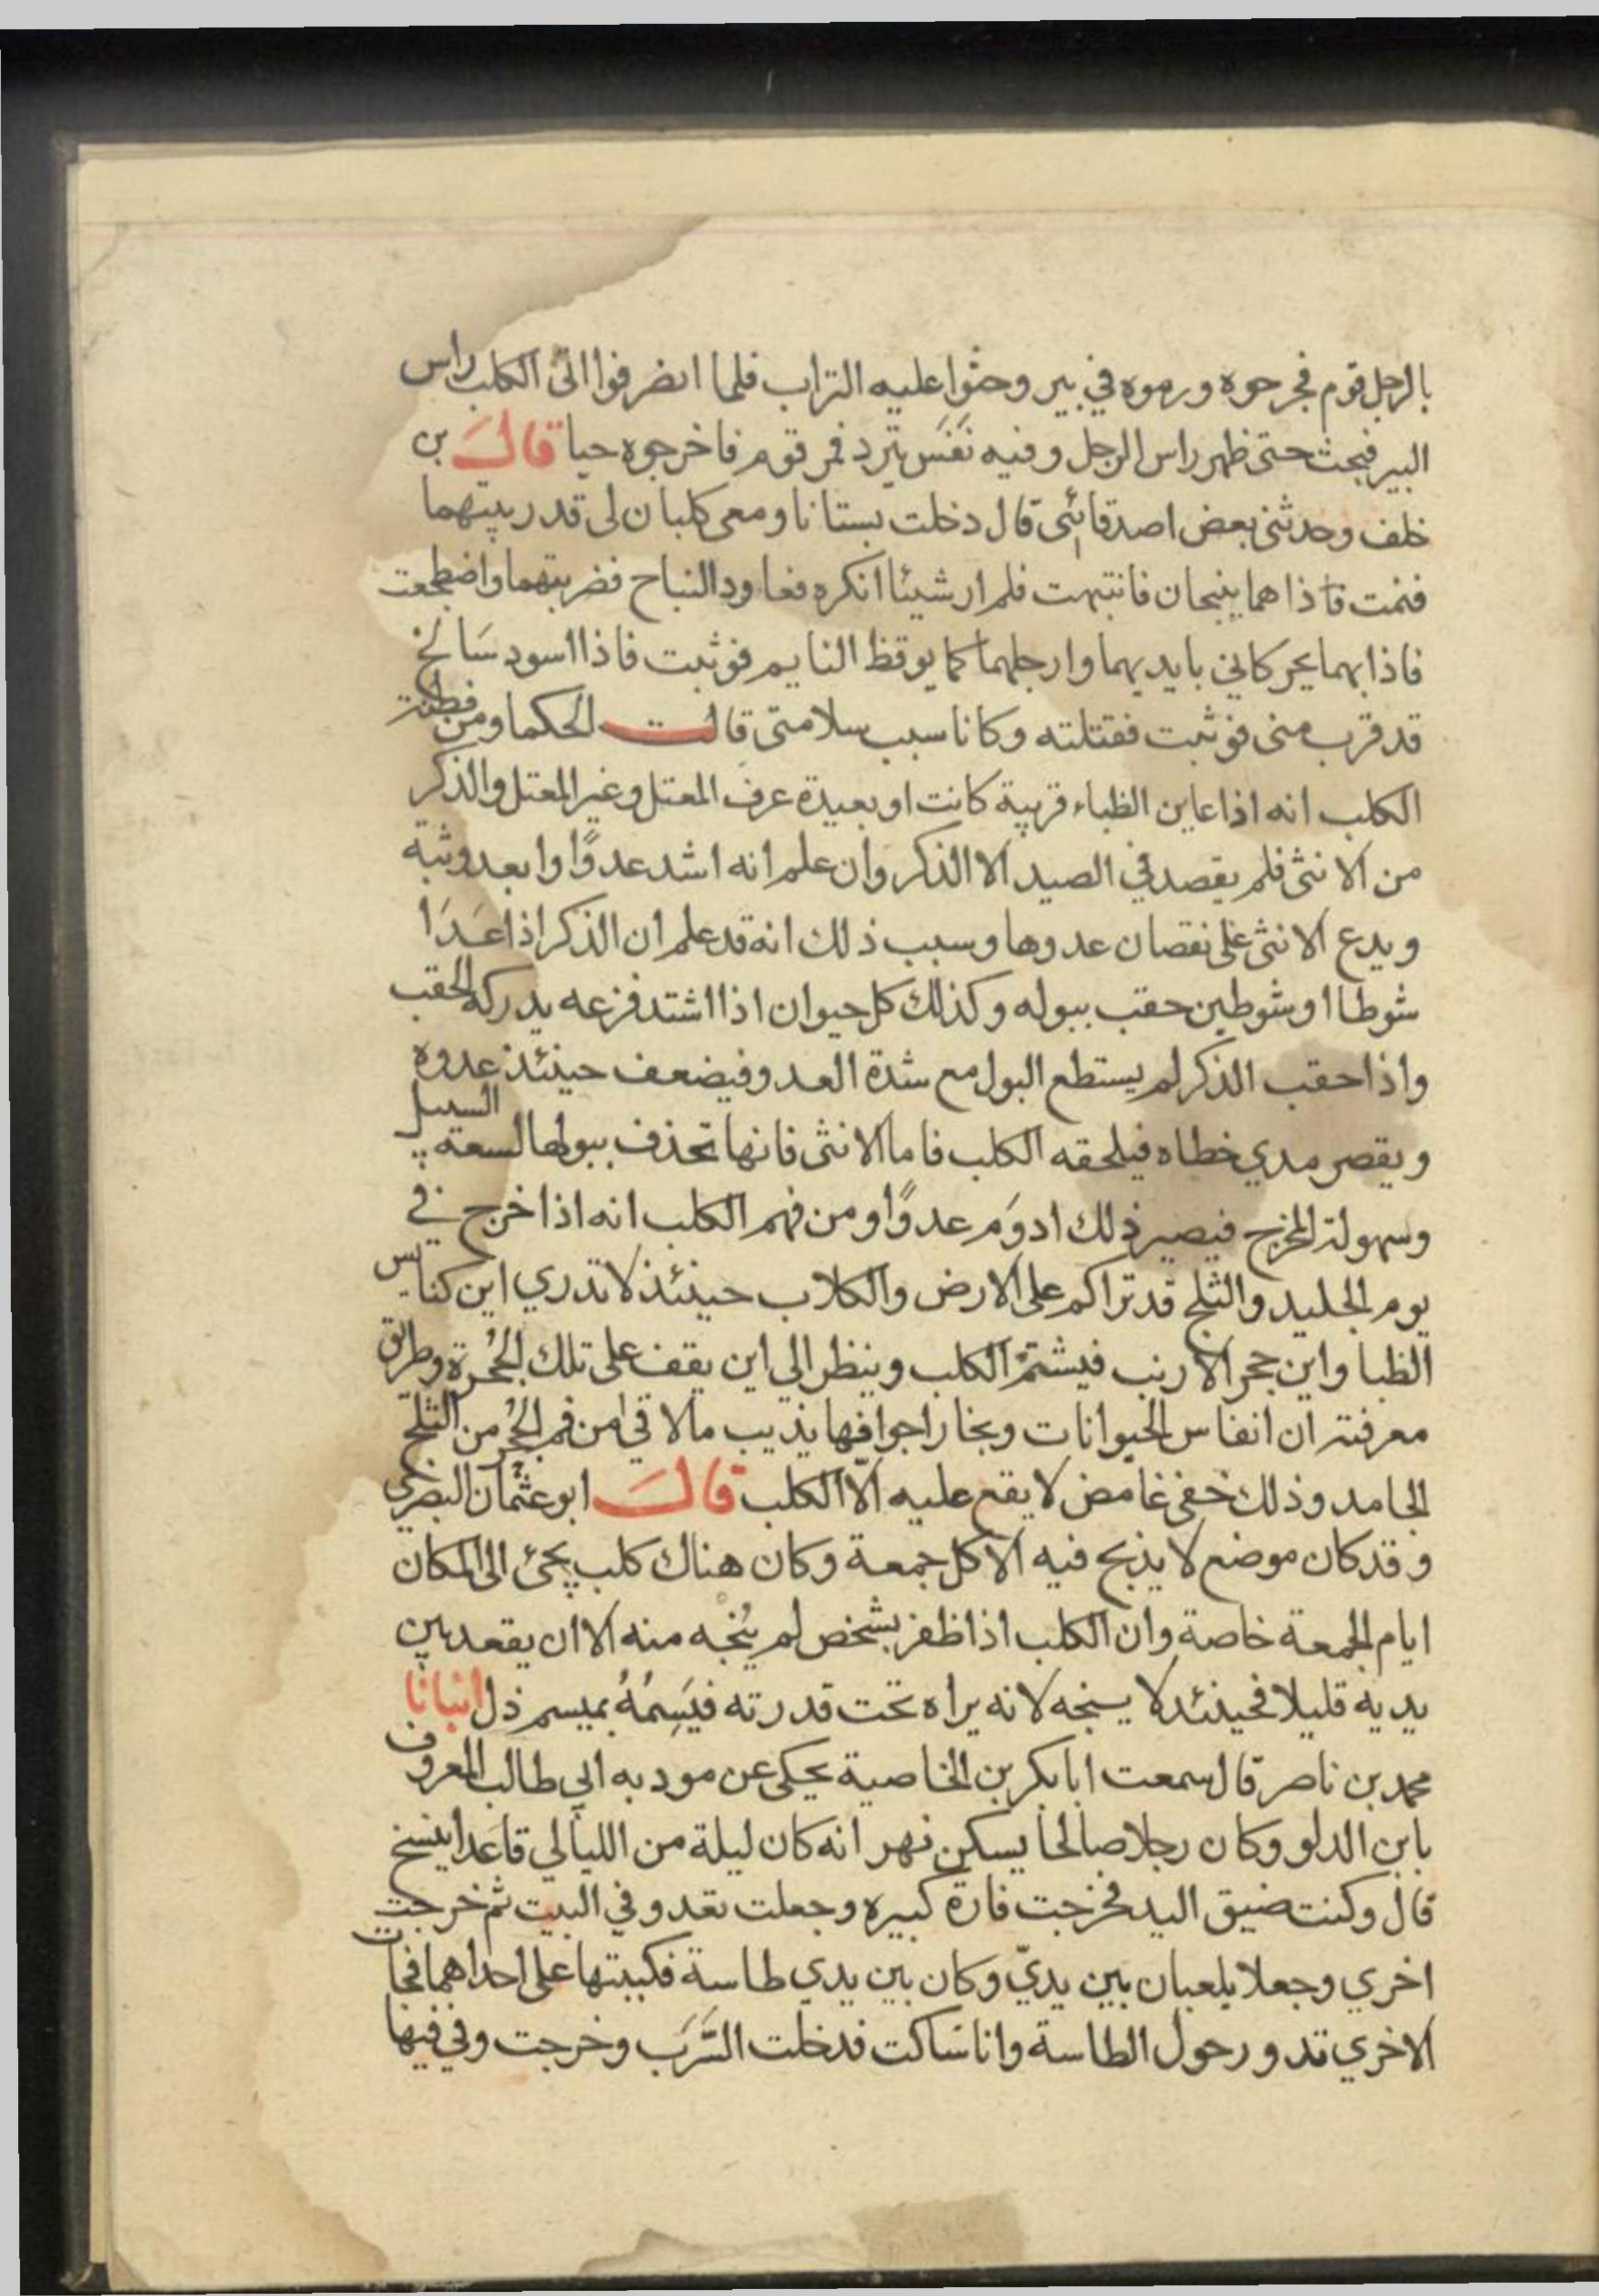 بالرجل قوم فجرحوه ورموه في بير وحثوا عليه التراب فلما انصرفوا اتى الكلب راس
البير فبحث حتى ظهر راس الرجل وفيه نفَس يتردد فمر قوم فاخرجوه حيا قال بن
خلف وحدثني بعض اصدقائي قال دخلت بستانا ومعي كلبان لي قد ربيتهما
فنمت فاذا هما ينبحان فانتبهت فلم ار شيئا انكره فعاود النباح فضربتهما واضطجعت
فاذا بهما يحركاني بايديهما وارجلهما كما يوقظ النايم فوثبت فاذا اسود سالخ
قد قرب مني فوثبت فقتلته وكانا سبب سلامتي قالت الحكما ومن فطنة
الكلب انه اذا عاين الظباء قريبة كانت او بعيدة عرف المعتل وغير المعتل والذكر
من الانثى فلم يقصد في الصيد الا الذكر وان علم انه اشد عدوًا وابعد وثبة
ويدع الانثى على نقصان عدوها وسبب ذلك انه قد علم ان الذكر اذا عَدَا
شوطا او شوطين حقب ببوله وكذلك كل حيوان اذا اشتد فزعه يدركه الحقب
واذا حقب الذكر لم يستطع البول مع شدة العدو فيضعف حينئذ عدوه
ويقصر مدي خطاه فيلحقه الكلب فاما الانثى فانها تحذف ببولها لسعة السبيل
وسهولة المخرج فيصير ذلك ادوَم عدوًا ومن فهم الكلب انه اذا خرج في
يوم الجليد والثلج قد تراكم على الارض والكلاب حينئذ لا تدري اين كنايس
الظبا واين جحر الارنب فيشتمّ الكلب وينظر الي اين يقف على تلك الجُحرة وطريق
معرفته ان انفاس الحيوانات وبخار اجوافها يذيب ما لاقي من فم الجُحر من الثلج
الجامد وذلك خفي غامض لا يقع عليه الّا الكلب قال ابو عثمان البصري
وقد كان موضع لا يذبح فيه الا كل جمعة وكان هناك كلب يجئ الى المكان
ايام الجمعة خاصة وان الكلب اذا ظفر بشخص لم يُنجه منه الا ان يقعد بين
يديه قليلا فحينئد لا ينبحه لانه يراه تحت قدرته فيَسِمُهُ بميسم ذل انبانا
محمد بن ناصر قال سمعت ابا بكر بن الخاضبة يحكى عن مودبه ابي طالب المعروف
بابن الدلو وكان رجلا صالحا يسكن نهر انه كان ليلة من الليالي قاعدا ينسخ
قال وكنت ضيق اليد فخرجت فارة كبيره وجعلت تعدو في البيت ثم خرجت
اخري وجعلا يلعبان بين يديّ وكان بين يدي طاسة فكببتها على احداهما فجات
الاخري تدور حول الطاسة وانا ساكت فدخلت السَّرَب وخرجت وفي فيها